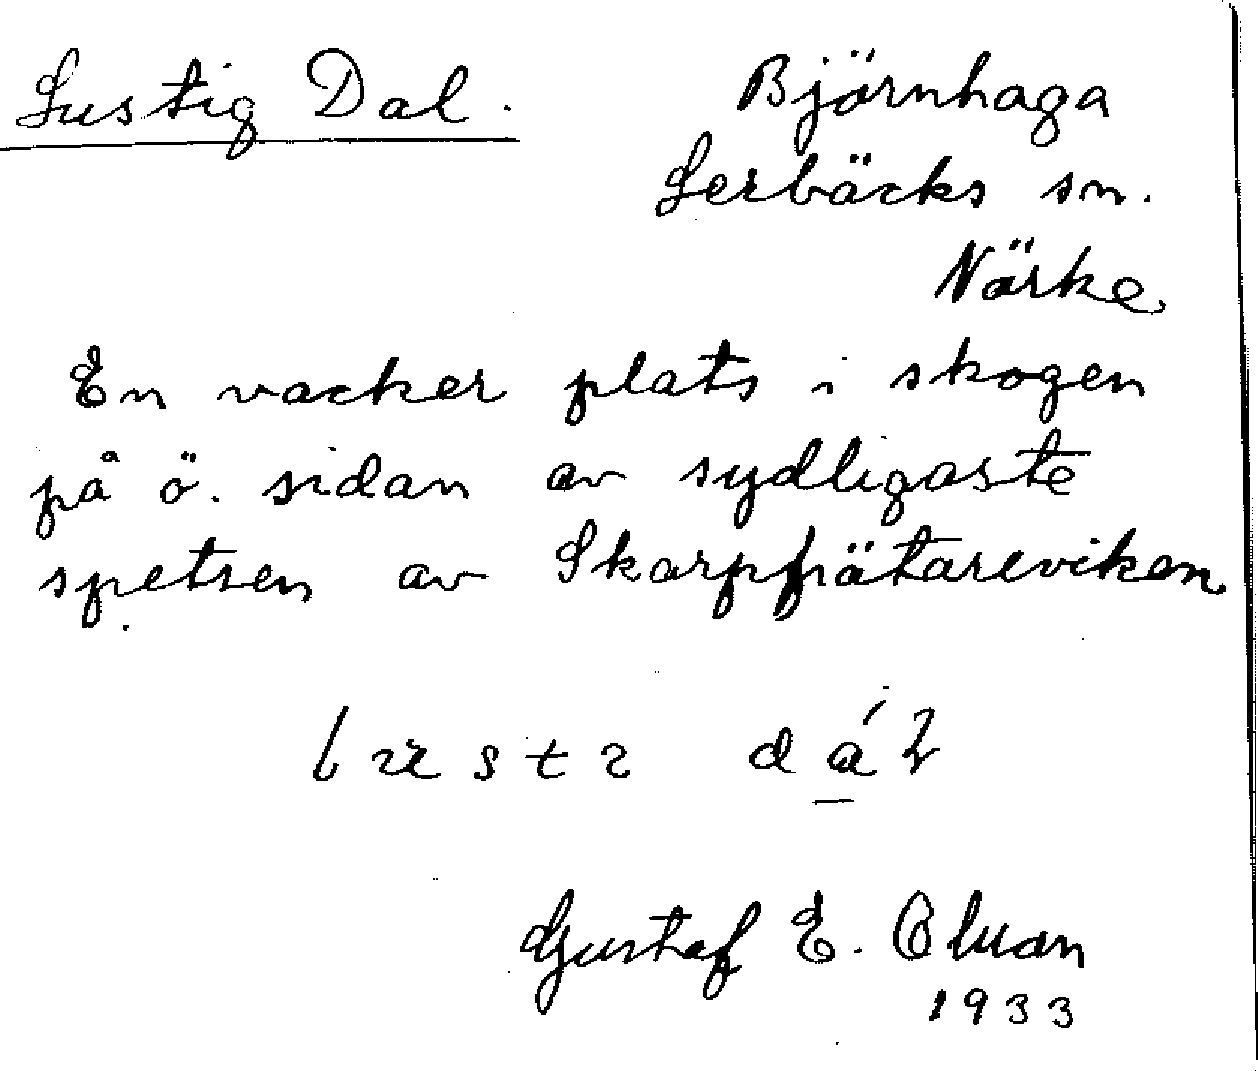 Lustig Dal.
Björnhaga
Lerbäcks sn.
Närke
En vacker plats i skogen
på ö. sidan av sydligaste
spetsen av Skarpfjätareviken
dá
Gustaf E.
1933